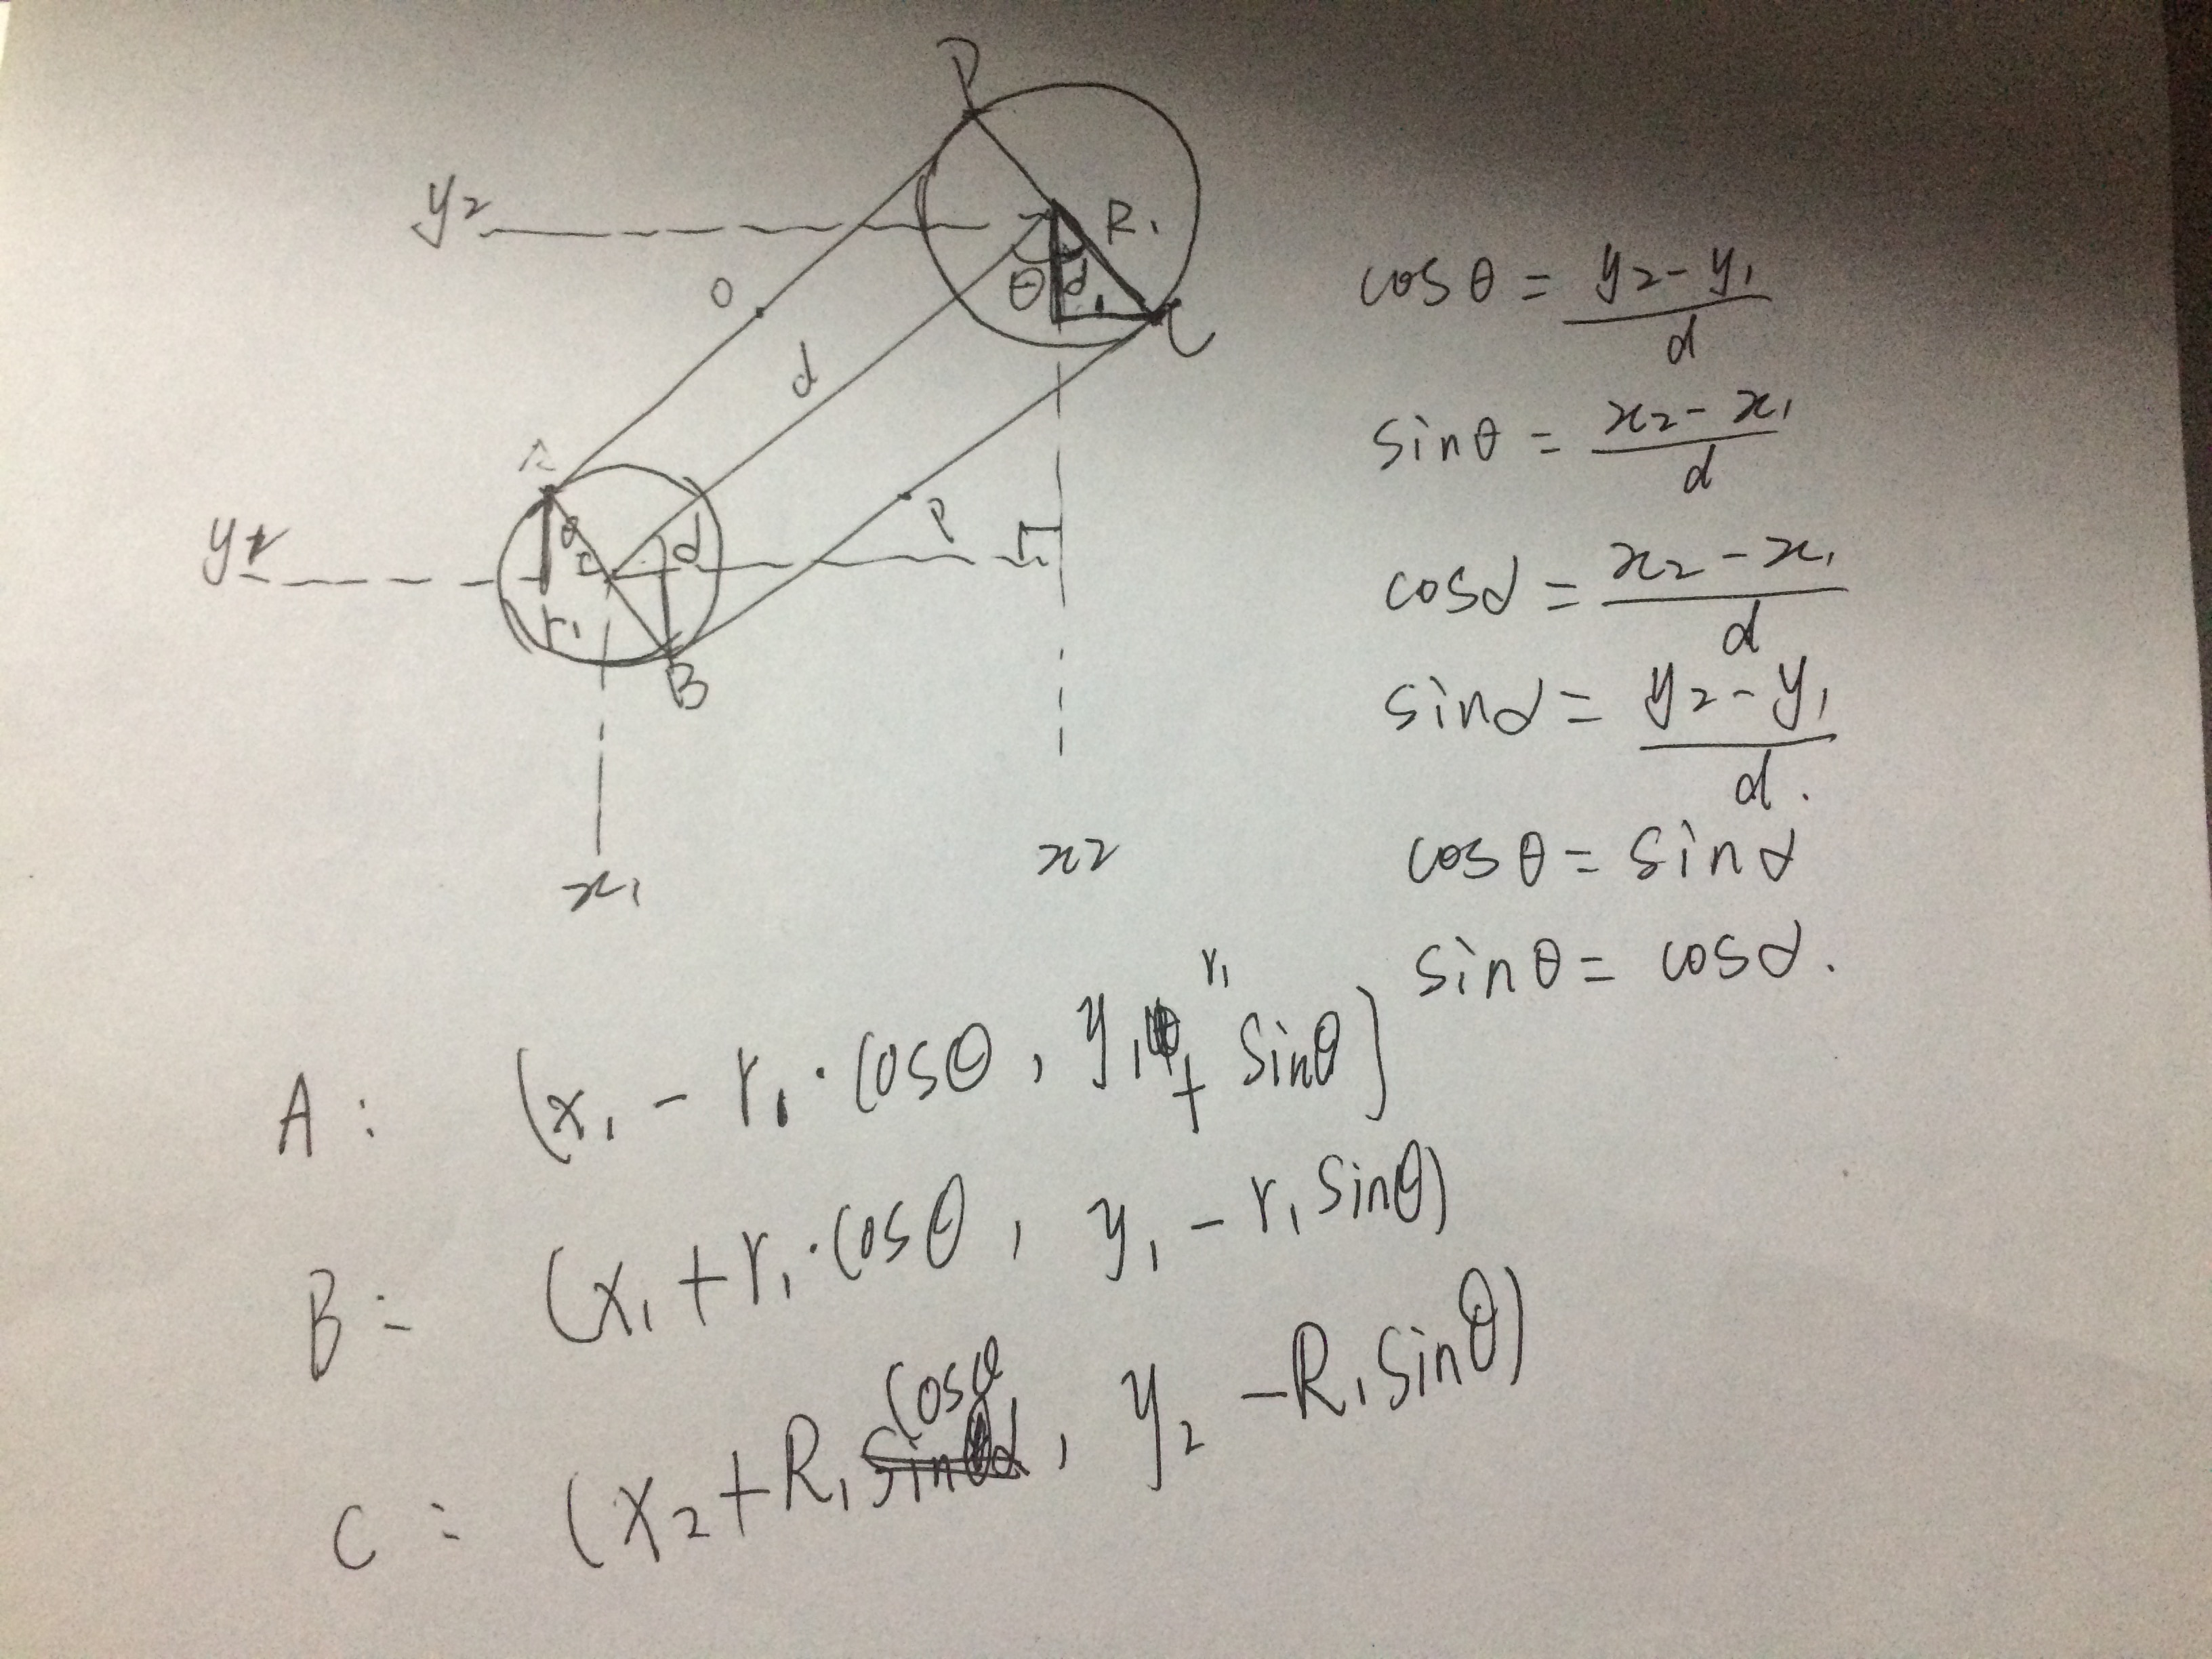 D
y₂
R₁
O
θ
α
C
d
A
θ
α
P
r₁
B
x₁
x₂
cosθ = (y₂-y₁)/d
sinθ = (x₂-x₁)/d
cosα = (x₂-x₁)/d
sinα = (y₂-y₁)/d.
cosθ = sinα
sinθ = cosα.
A: (x₁ - r₁·cosθ, y₁ + r₁ sinθ)
B: (x₁ + r₁·cosθ, y₁ - r₁ sinθ)
C: (x₂ + R₁ cosθ, y₂ - R₁ sinθ)